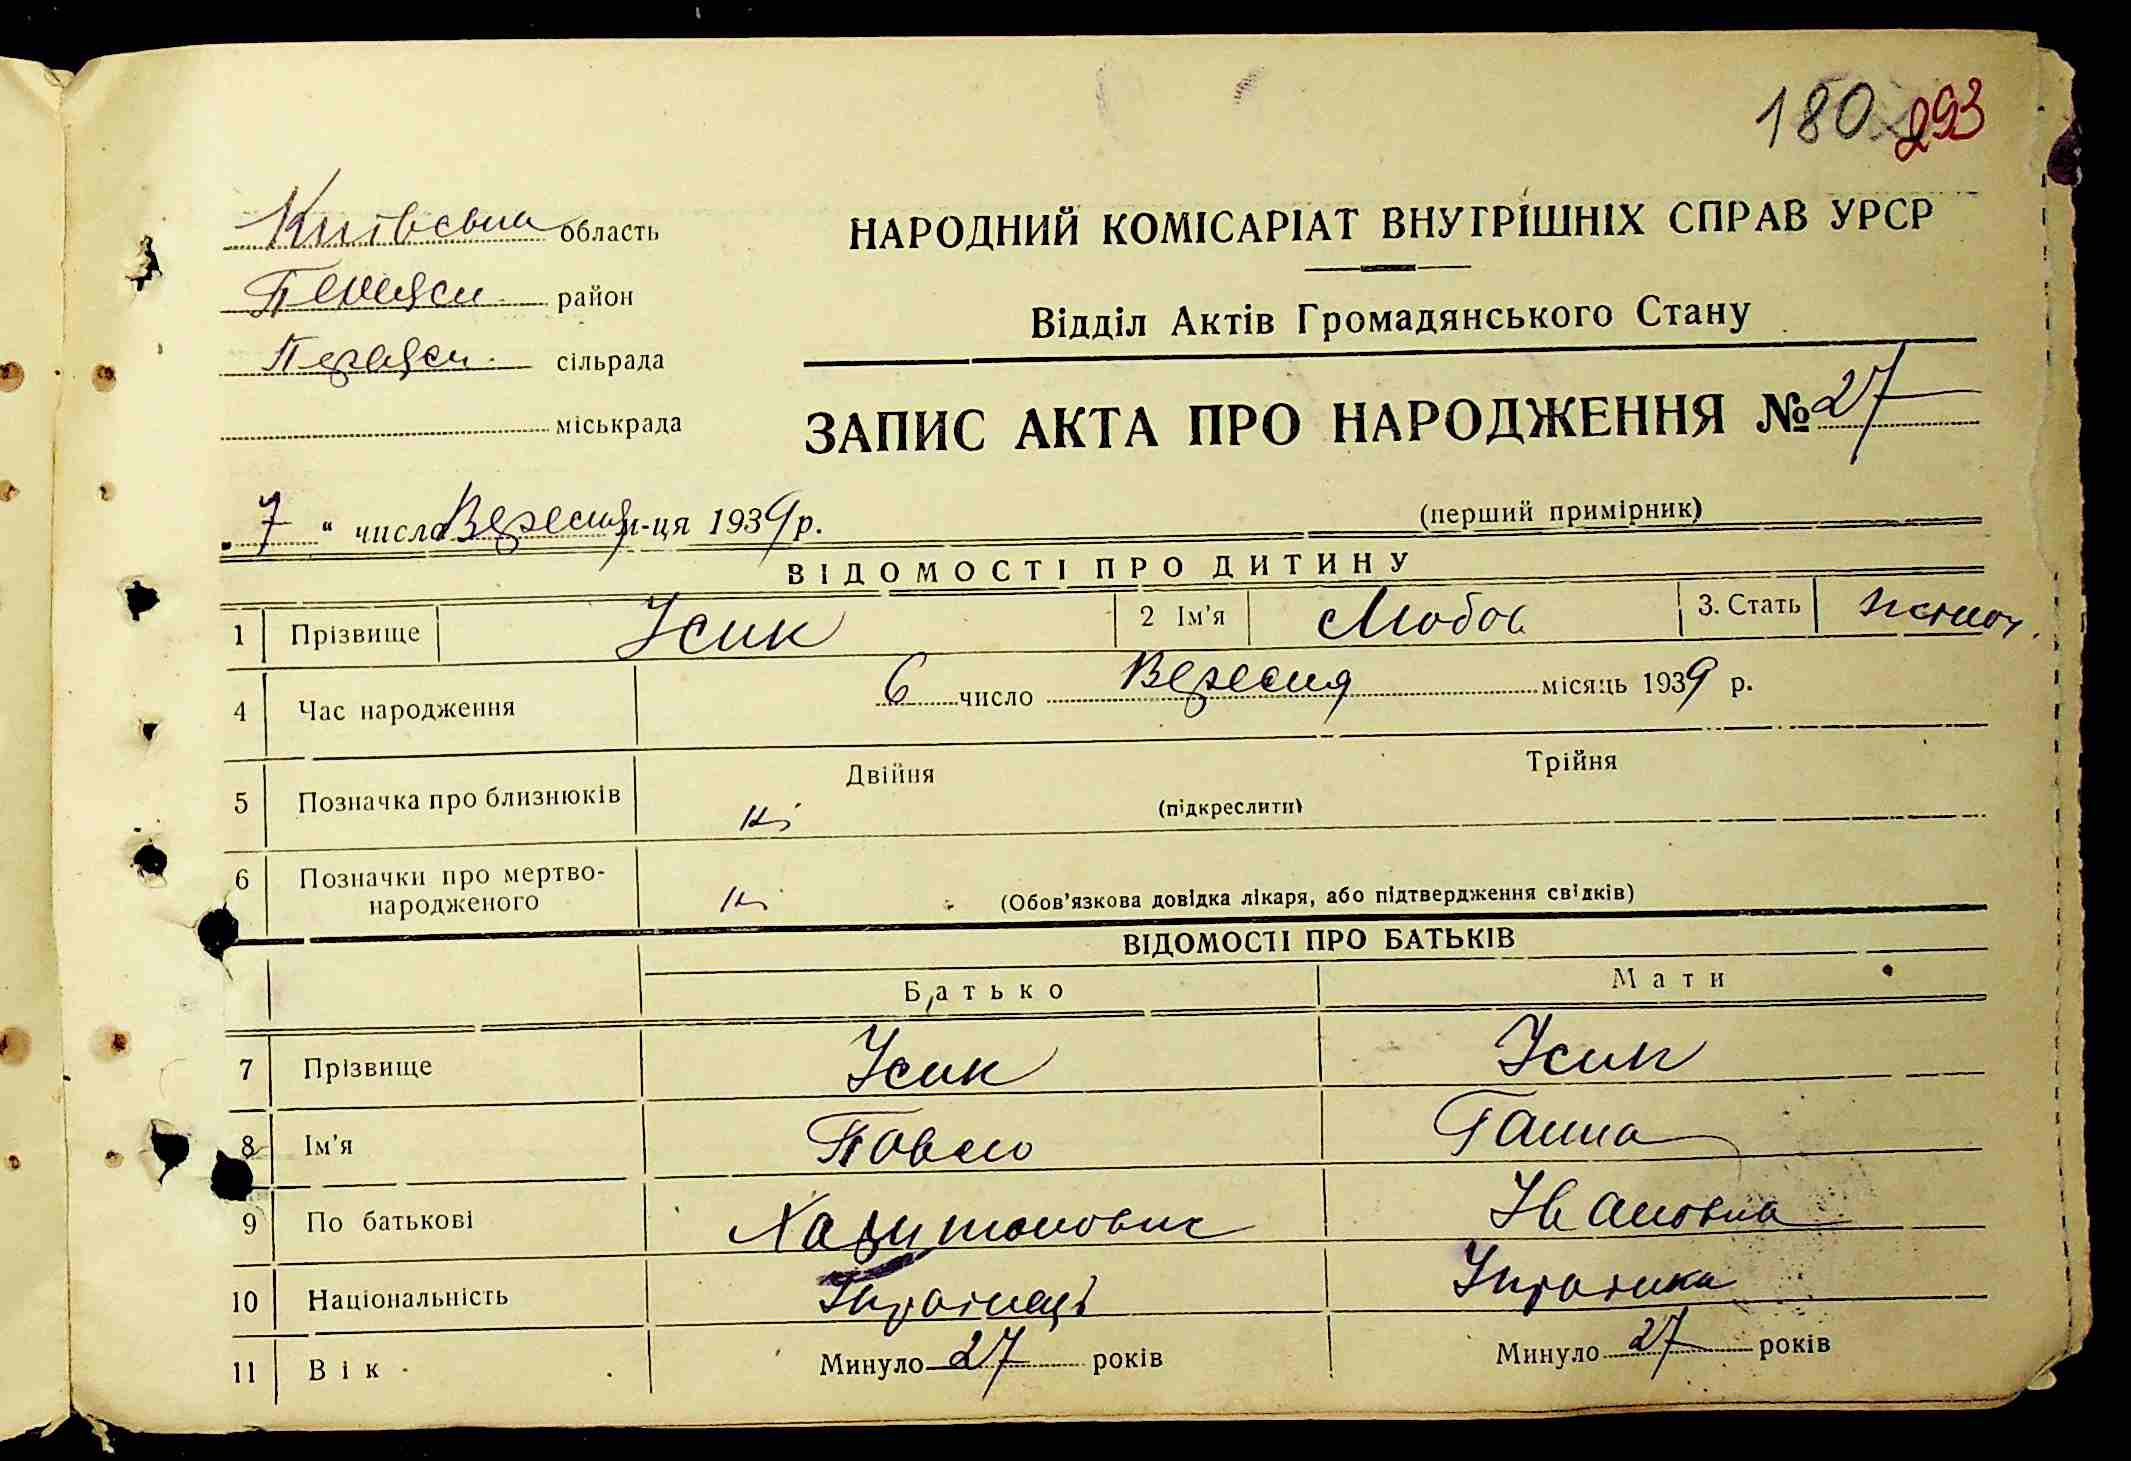 180 293
Київська область
район
сільрада
міськрада
НАРОДНИЙ КОМІСАРІАТ ВНУТРІШНІХ СПРАВ УРСР
Відділ Актів Громадянського Стану
ЗАПИС АКТА ПРО НАРОДЖЕННЯ № 27
(перший примірник)
„7“ число Вересня м-ця 1939 р.
ВІДОМОСТІ ПРО ДИТИНУ
1 Прізвище Усик 2 Ім'я Любов 3. Стать жіноч.
4 Час народження 6 число Вересня місяць 1939 р.
5 Позначка про близнюків ні Двійня Трійня
(підкреслити)
6 Позначки про мертво-
народженого ні (Обов'язкова довідка лікаря, або підтвердження свідків)
ВІДОМОСТІ ПРО БАТЬКІВ
Батько Мати
7 Прізвище Усик Усик
8 Ім'я Павло Ганна
9 По батькові Харитонович Івановна
10 Національність Українець Українка
11 Вік Минуло 27 років Минуло 27 років